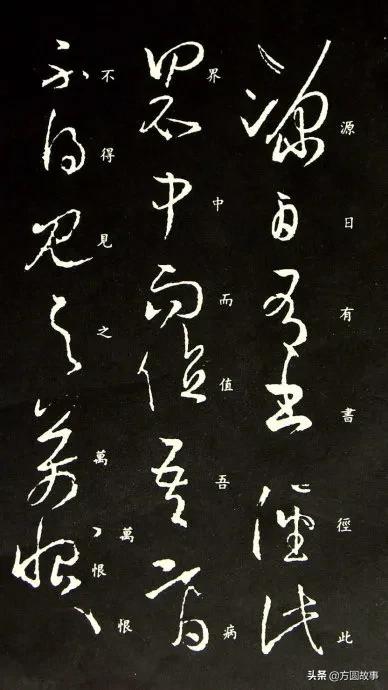 源日有書徑此
界中而值吾病
不得見之萬萬恨恨
头条 @方圆故事